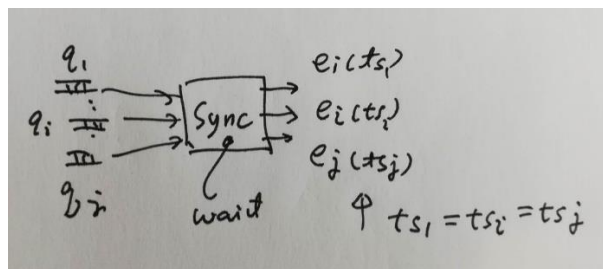 q₁
qᵢ
qⱼ
Sync
wait
eᵢ(ts₁)
eᵢ(tsᵢ)
eⱼ(tsⱼ)
ts₁ = tsᵢ = tsⱼ